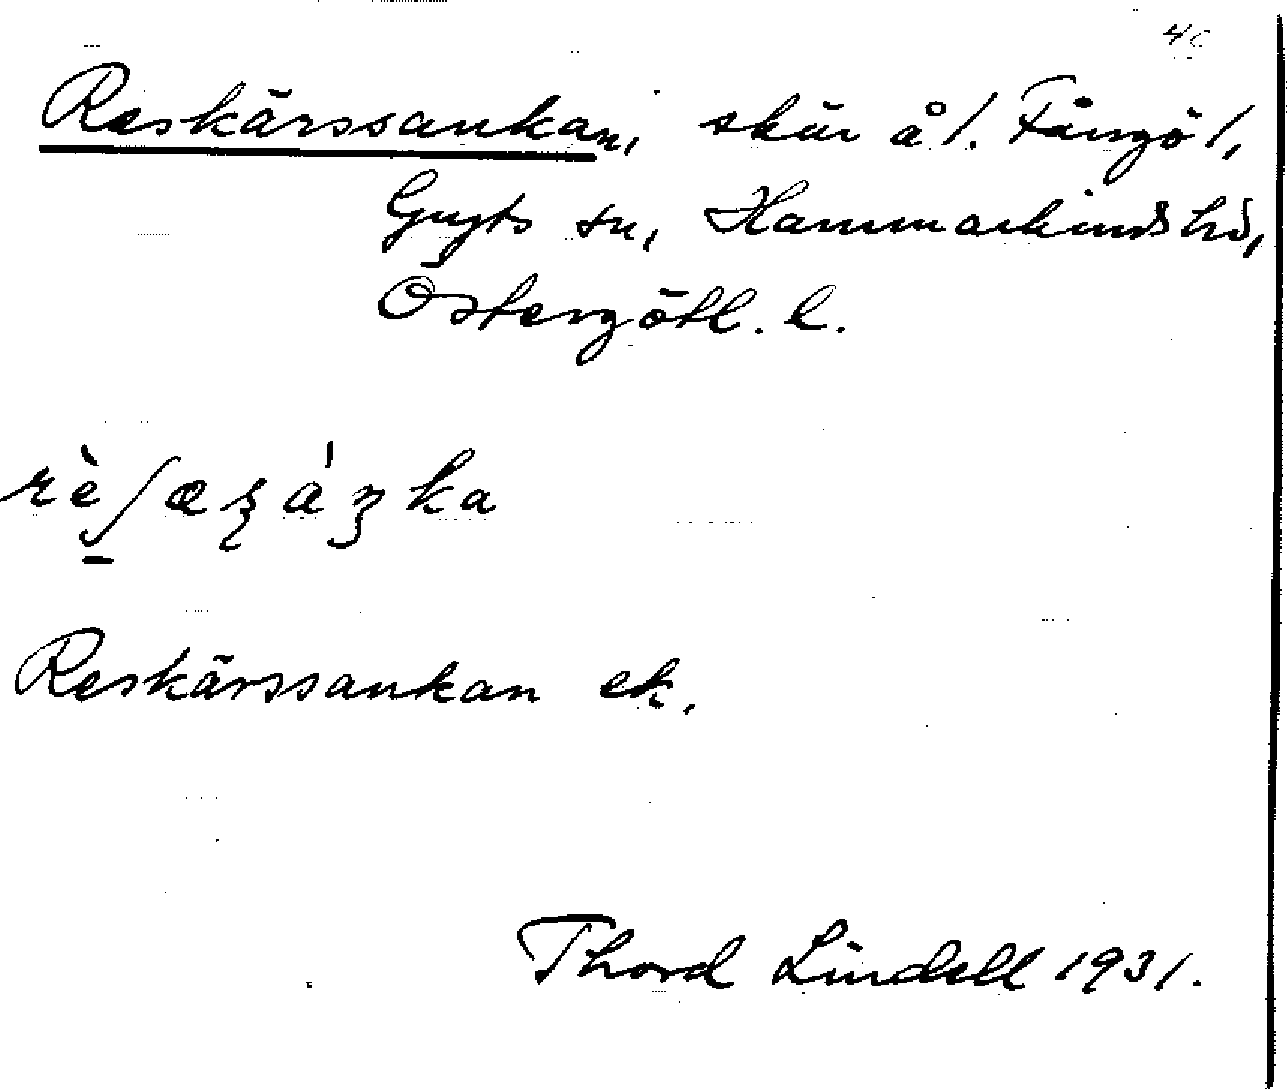 4c
Reskärssankan, skär å 1. Fångö 1,
Gryts sn, Hammarkinds hd,
Östergötl. l.
Reskärssankan ek.
Thord Lindell 1931.